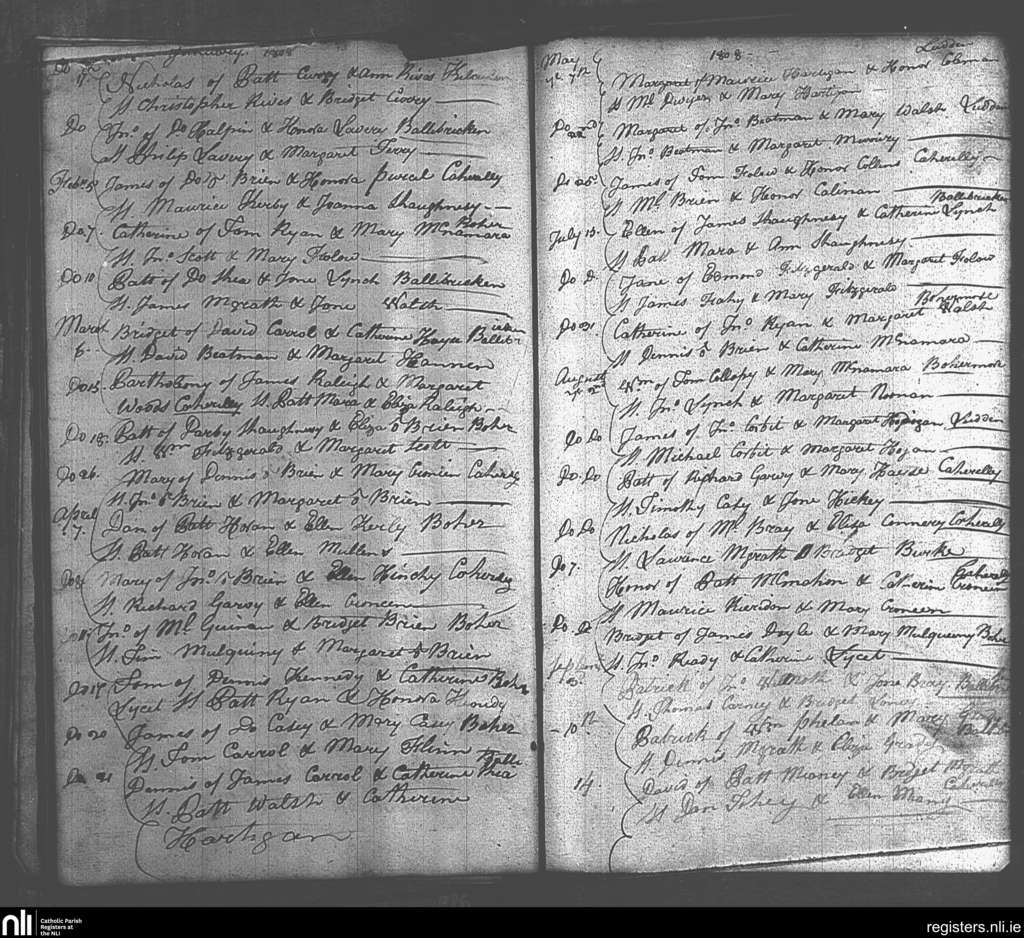 January 1808
Do 17 Nicholas of Patt Curry & Ann Rives
St. Christopher Rives & Bridget Curry
Do Jno. of Do Halpin & Honora Lavery Ballibricken
St. Philip Lavery & Margaret Terry
Febr. 5 James of Do O Brien & Honora Purcel Caherelly
St. Maurice Herby & Joanna Shaughnesy
Do 7. Catherine of Tom Ryan & Mary McNamara Boher
St. Jno. Scott & Mary Folow
Do 10 Patt of Do Shea & Jone Lynch Ballibricken
St. James Mgrath & Jone Walsh
March 6 Bridget of David Carrol & Catherine Hayes
St. David Beatman & Margaret Hannen
Do 15. Bartholomy of James Raleigh & Margaret
Woods Caherelly St. Patt Mara & Eliza Raleigh
Do 18. Patt of Darby Shaughnesy & Eliza O Brien Boher
St. Wm. Fitzgerald & Margaret
Do 26. Mary of Dennis O Brien & Mary Cronien Caherely
St. Jno. O Brien & Margaret O Brien
April 7. Dan of Patt Horan & Ellen Boher
St. Patt Horan & Ellen Mullens
Do Mary of Jno. O Brien & Ellen Hinchy Caherely
St. Richard Garvy & Ellen Croneen
Do 11 Jno. of Ml. Guinan & Bridget Brien Boher
St. Tim Mulquiny & Margaret O Brien
Do 17 Tom of Dennis Kennedy & Catherine Boher
Lycet St. Patt Ryan & Honora
Do 20 James of Do Casey & Mary Casey Boher
St. Tom Carrol & Mary Flinn
Do 21 Dennis of James Carrol & Catherine Shea
St. Patt Walsh & Catherine
Hartigan
1808 Ludden
May Margaret of Maurice Hartigan & Honor Colman
St. Ml. Dwyer & Mary Hartigan
Do 22 Margaret of Jno. Beatman & Mary Walsh Ludden
St. Jno. Beatman & Margaret
Do 26. James of Tom Folow & Honor Collens Caherelly
St. Ml. Brien & Honor Colman
July 13. Ellen of James Shaughnesy & Catherine Lynch Ballibricken
St. Patt Mara & Ann Shaughnesy
Do D. Jane of Edmond Fitzgerald & Margaret Folow
St. James Fahy & Mary Fitzgerald
Do 31 Catherine of Jno. Ryan & Margaret Walsh Bohermore
St. Dennis O Brien & Catherine McNamara
August Wm. of Tom Collopy & Mary McNamara Bohermore
St. Jno. Lynch & Margaret Noonan
Do Do James of Jno. Corbit & Margaret Ludden
St. Michael Corbit & Margaret Hogan
Do Do Patt of Richard Garvy & Mary Caherelley
St. Timothy Casy & Jone Hickey
Do Do Nicholas of Ml. Bray & Eliza Connery Caherelly
St. Laurance Mgrath & Bridget Burke
Do 7. Honor of Patt McMahon & Catherine Croneen Caherelly
St. Maurice Rierdon & Mary Croneen
Do Bridget of James Doyle & Mary Mulquiny Boher
St. Jno. Ready & Catherine Lycet
Patrick of Jno. & Jone Bray
St. Thomas Carney & Bridget
10 Patrick of Wm. Phelan & Mary
St. Dennis Mgrath & Eliza Grady
14 David of Patt Mooney & Bridget Mgrath Caherelly
St. Dan Fahey & Ellen
nli
Catholic Parish
Registers at
the NLI
registers.nli.ie